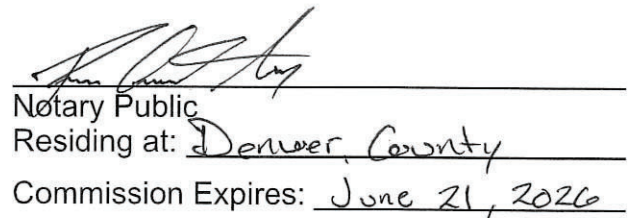 Notary Public
Residing at: Denver, County
Commission Expires: June 21, 2026